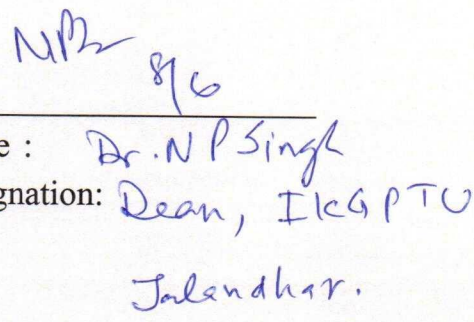 8/6
e : Dr. N P Singh
gnation: Dean, IKGPTU
Jalandhar.